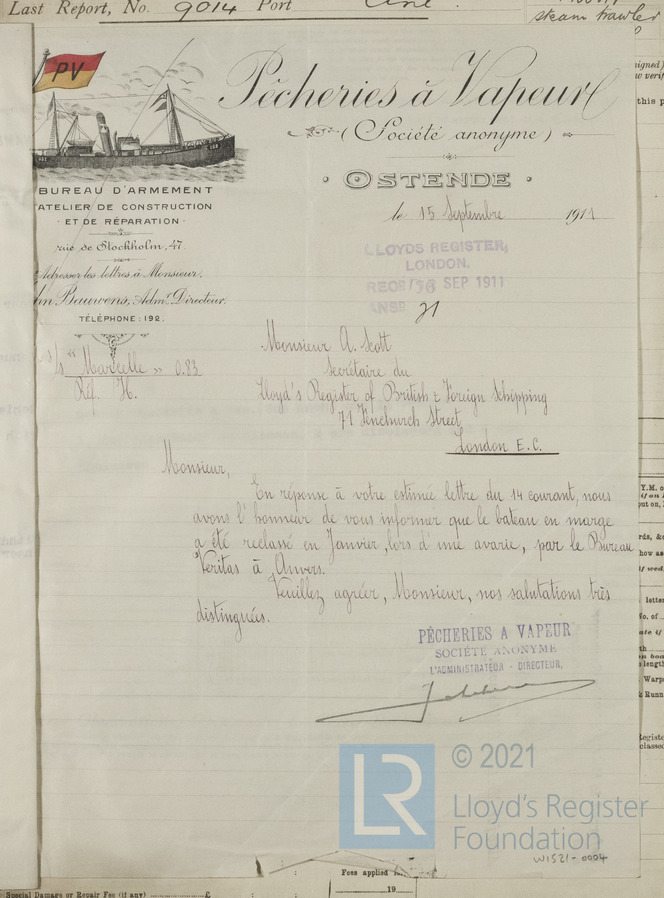 Last Report, No. 9014 Port
steam trawler
PV
Pêcheries à Vapeur
(Société anonyme)
OSTENDE
BUREAU D'ARMEMENT
ATELIER DE CONSTRUCTION
ET DE RÉPARATION
rue de Stockholm, 47.
Adresser les lettres à Monsieur
Bauwens, Admr Directeur.
TÉLÉPHONE: 192.
le 15 Septembre 1911
LLOYDS REGISTER,
LONDON.
RECED 16 SEP 1911
ANSD 21
S/S "Marcelle" 0.83
Réf. H.
Monsieur A. Scott
Secrétaire du
Lloyd's Register of British & Foreign Schipping
71 Fenchurch Street
London E.C.
Monsieur,
En réponse à votre estimée lettre du 14 courant, nous
avons l'honneur de vous informer que le bateau en marge
a été reclassé en Janvier, lors d'une avarie, par le Bureau
Veritas à Anvers.
Veuillez agréer, Monsieur, nos salutations très
distinguées.
PÊCHERIES A VAPEUR
SOCIÉTÉ ANONYME
L'ADMINISTRATEUR - DIRECTEUR,
LR
© 2021
Lloyd's Register
Foundation
W1521-0004
Fees applied
19
Special Damage or Repair Fee (if any) £